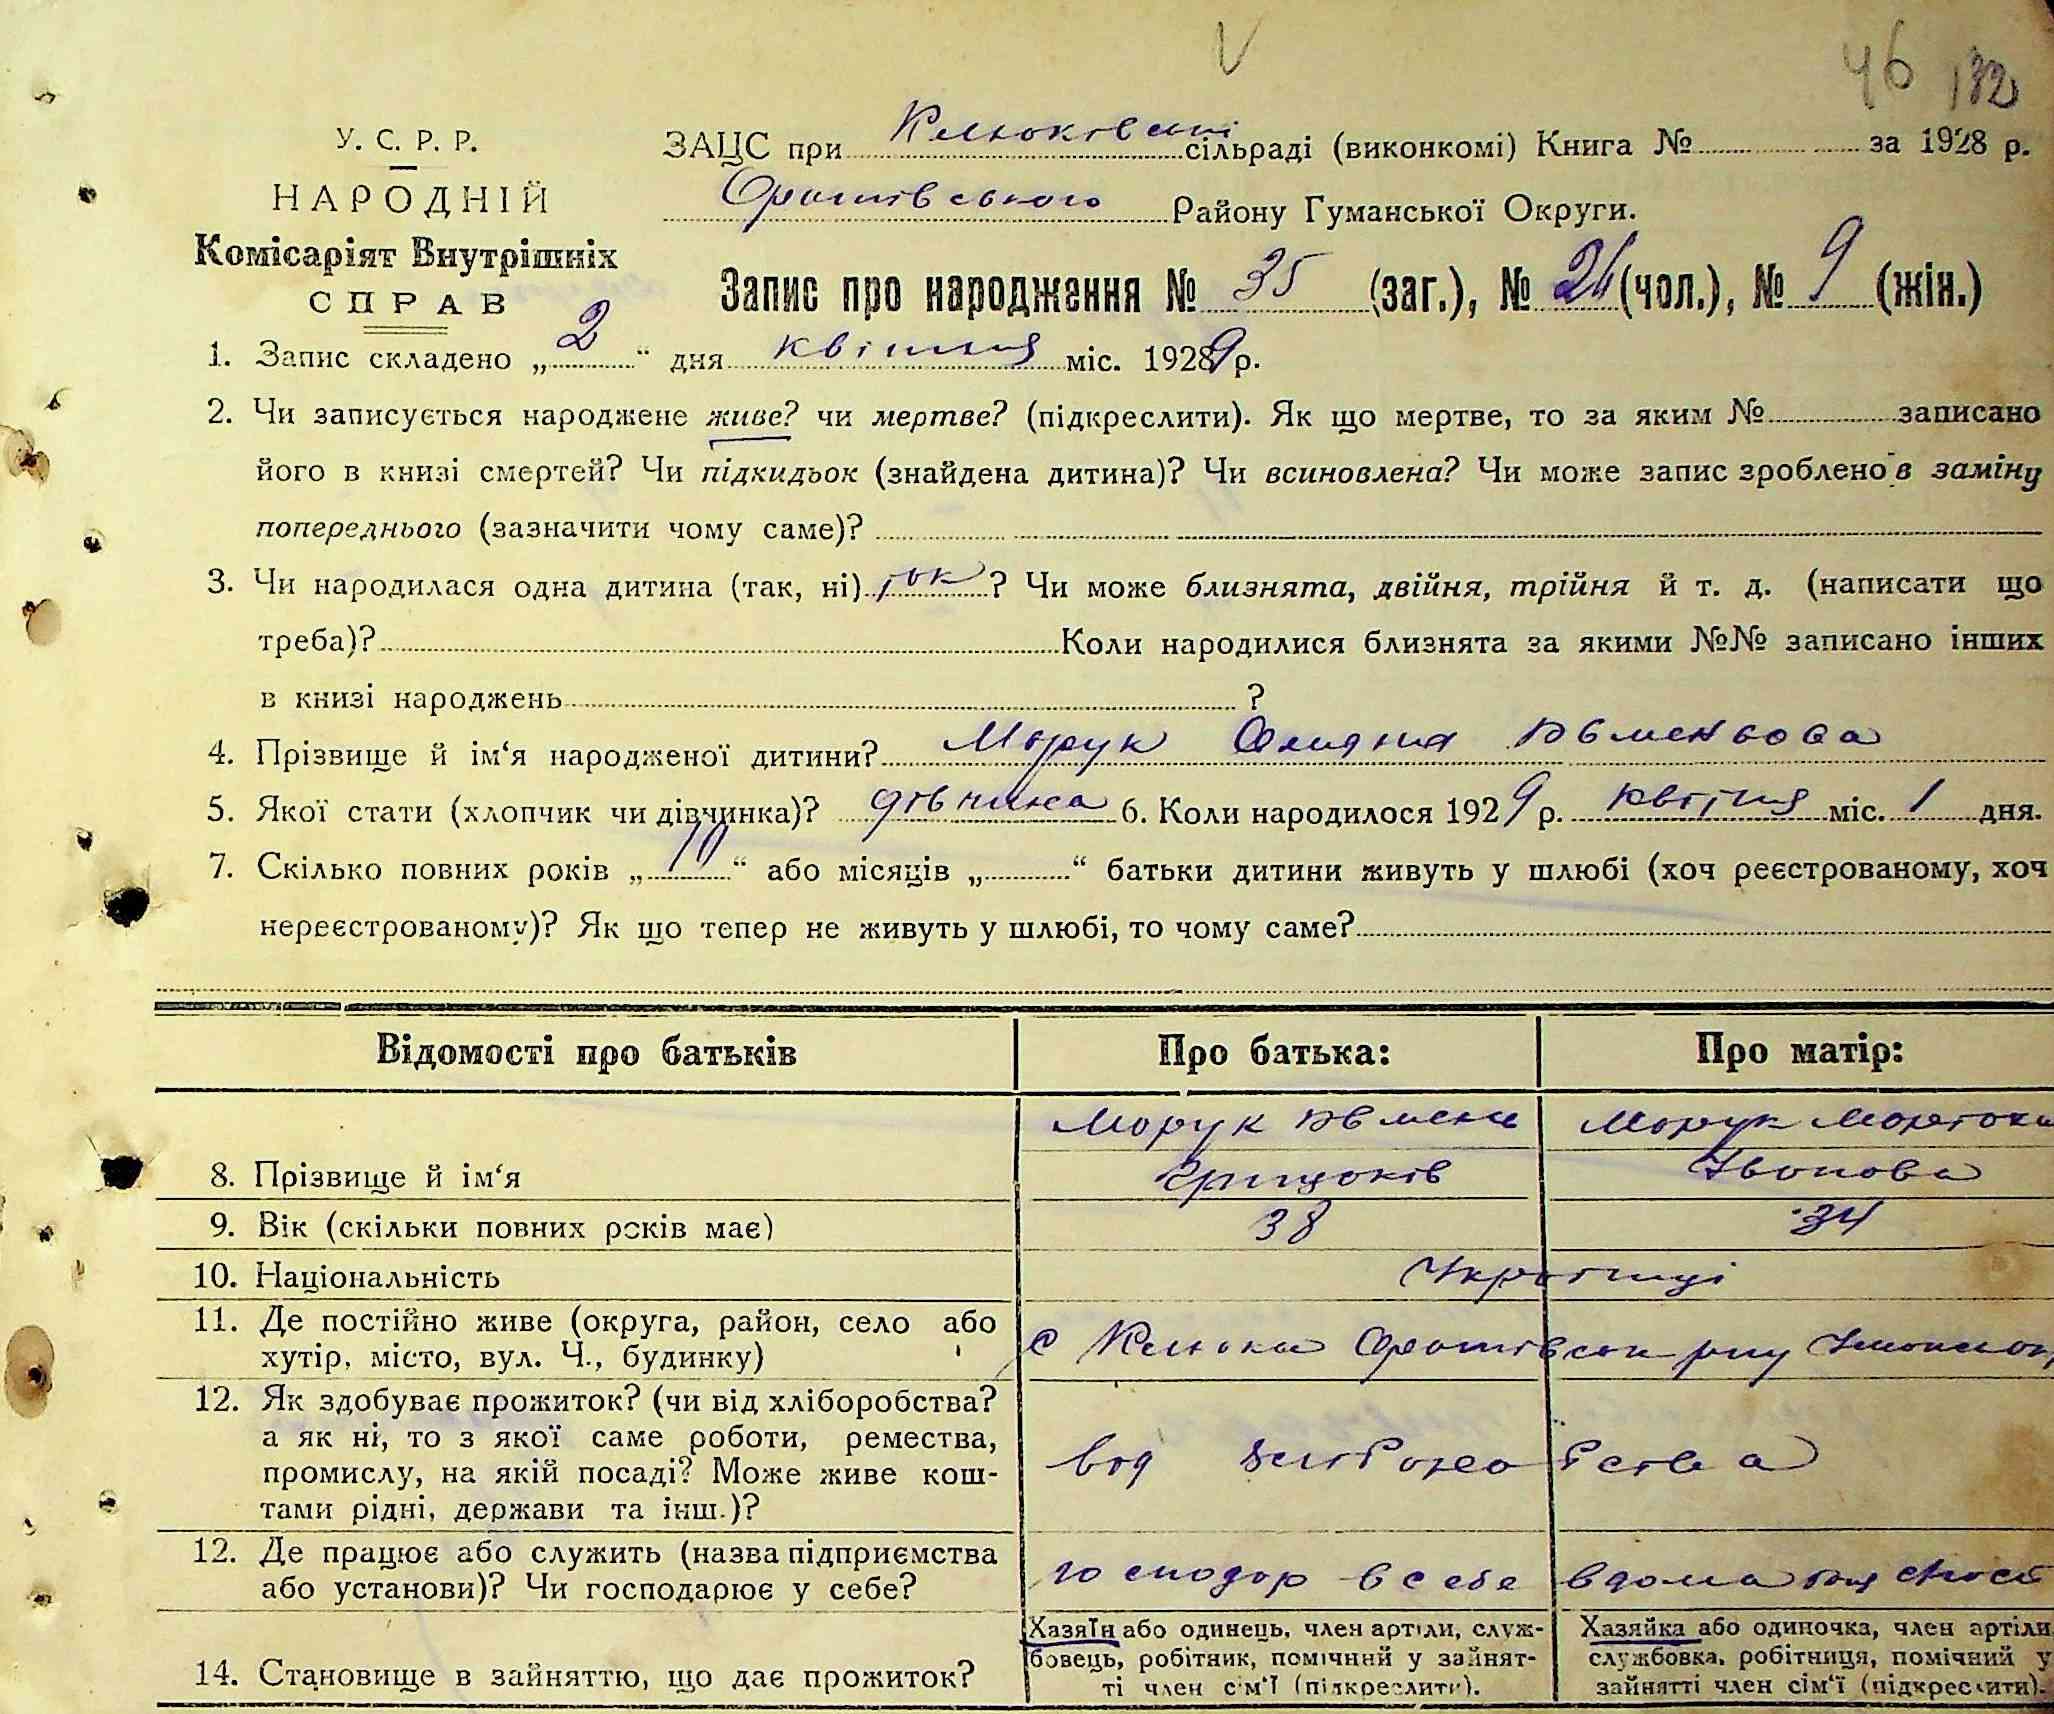 46 132
У. С. Р. Р.
НАРОДНІЙ
Комісаріят Внутрішніх
СПРАВ
ЗАЦС при Клюківські сільраді (виконкомі) Книга № за 1928 р.
Оратівського Району Гуманської Округи.
Запис про народження № 35 (заг.), № 26 (чол.), № 9 (жін.)
1. Запис складено „ 2 “ дня квітня міс. 1928 9 р.
2. Чи записується народжене живе? чи мертве? (підкреслити). Як що мертве, то за яким № записано
його в книзі смертей? Чи підкидьок (знайдена дитина)? Чи всиновлена? Чи може запис зроблено в заміну
попереднього (зазначити чому саме)?
3. Чи народилася одна дитина (так, ні) так ? Чи може близнята, двійня, трійня й т. д. (написати що
треба)? Коли народилися близнята за якими №№ записано інших
в книзі народжень ?
4. Прізвище й ім‘я народженої дитини? Морук
5. Якої стати (хлопчик чи дівчинка)? дівчина 6. Коли народилося 1929 р. квітня міс. 1 дня.
7. Скілько повних років „ 10 “ або місяців „ “ батьки дитини живуть у шлюбі (хоч реєстрованому, хоч
нереєстрованому)? Як що тепер не живуть у шлюбі, то чому саме?
Відомості про батьків Про батька: Про матір:
Морук Овмень Морук
8. Прізвище й ім‘я Грицьків Івонова
9. Вік (скільки повних років має) 38 34
10. Національність Українці
11. Де постійно живе (округа, район, село або
хутір, місто, вул. Ч., будинку) с Клюки Оратівськ р-ну
12. Як здобуває прожиток? (чи від хліборобства?
а як ні, то з якої саме роботи, ремества,
промислу, на якій посаді? Може живе кош-
тами рідні, держави та інш.)? вод хліборобства
12. Де працює або служить (назва підприємства
або установи)? Чи господарює у себе? господор в себе вдома
14. Становище в зайняттю, що дає прожиток?
Хазяїн або одинець, член артіли, служ-
бовець, робітник, помічний у зайнят-
ті член сім‘ї (підкреслити).
Хазяйка або одиночка, член артіли
службовка, робітниця, помічний у
зайнятті член сім‘ї (підкреслити).